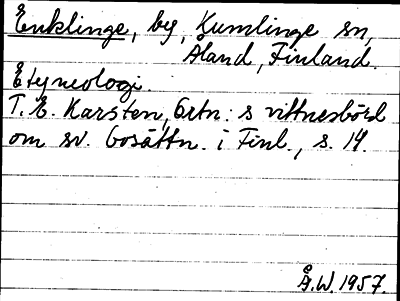 Enklinge, by, Kumlinge sn,
Åland, Finland.
Etymologi
T. E. Karsten, Ortn:s vittnesbörd
om sv. bosättn. i Finl., s. 14.
Å.W. 1957.